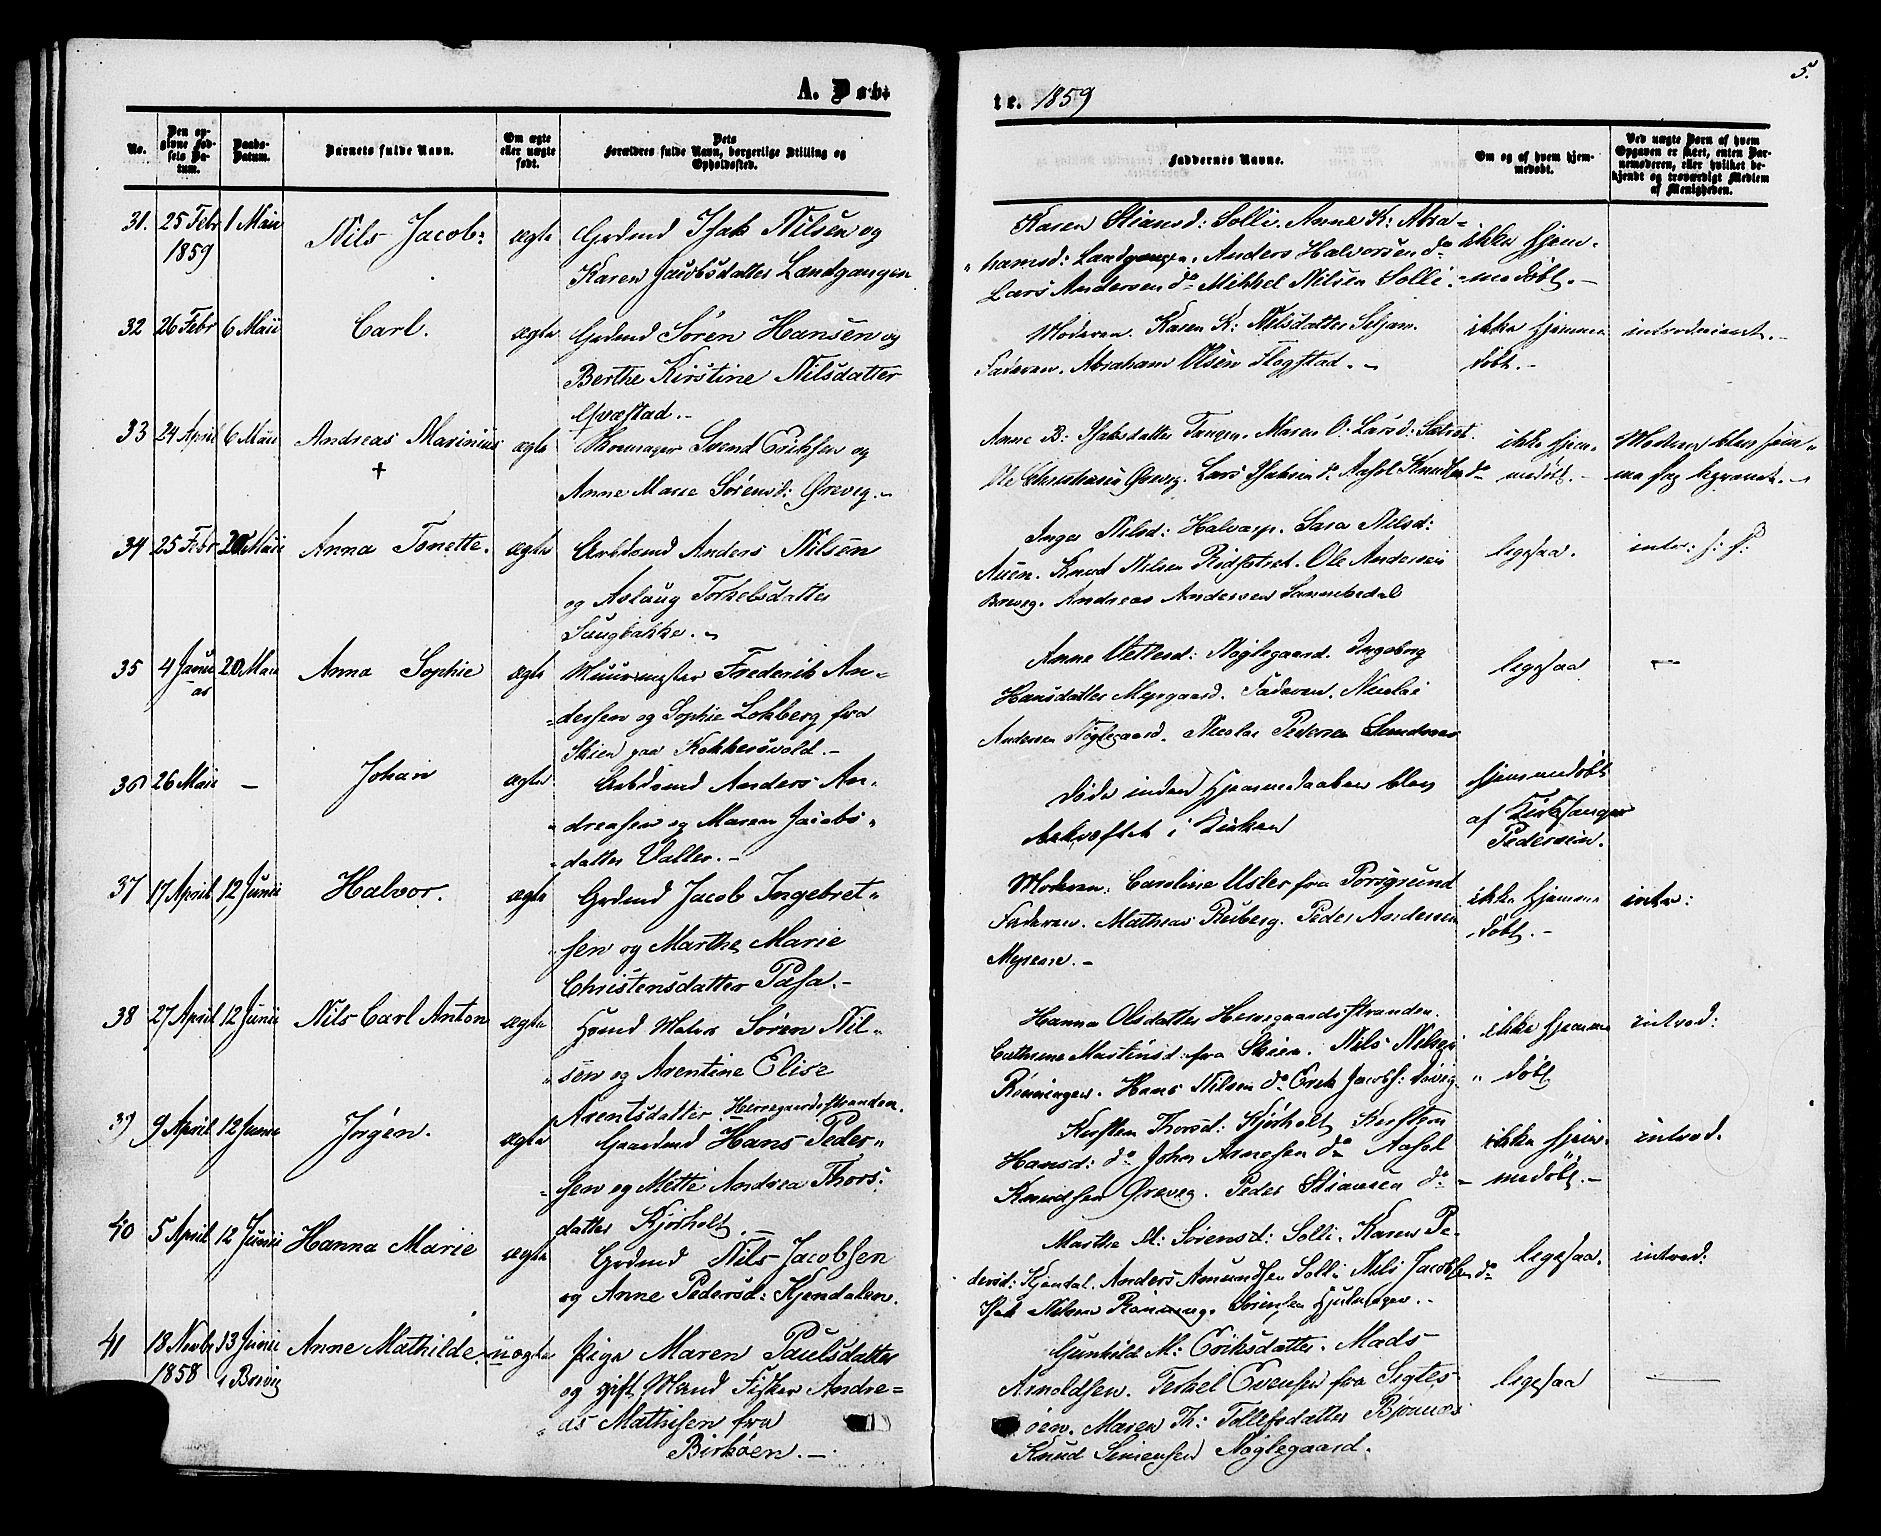 A. Døbte. 1859
5.
No.
Den opgivne Fødsels Datum.
Daabs-Datum.
Barnets fulde Navn.
Om ægte eller uægte født.
Dets Forældres fulde Navn, borgerlige Stilling og Opholdssted.
Faddernes Navne.
Om og af hvem hjemmedøbt.
Ved uægte Børn af hvem Opgaven er skeet, enten Barnemoderen, eller hvilket bekjendt og troværdigt Medlem af Menigheden.
31. 25 Febr 1859 1 Maii Nils Jacob: ægte Grdmd Isak Nilsen og
Karen Jacobsdatter Landgangen
Karen Stiansd: Solli. Anne K: Abra-
hamsd: Landgangen. Anders Halvorsen do
Lars Andersen do Mikkel Nilsen Solli.
ikke hjem-
medøbt.-
32 26 Febr 6 Maii Carl. ægte Grdmd Søren Hansen og
Berthe Kirstine Nilsdatter
Moderen. Karen K: Nilsdatter
Faderen. Abraham Olsen Flogstad.-
ikke hjemme
døbt.-
introduceret.-
33 24 April 6 Maii Andreas Marinius † ægte Svend Eriksen og
Anne Marie Sørensd: Ørevig.-
Anne B: Isaksdatter Tangen. Maren O: Larsd:
Ole Christensen Ørevig. Lars Isaksen do Aasol Knudsen do
ikke hjem-
medøbt.-
Moderen blev hjem-
34 25 Febr 20 Maii Anna Tonette. ægte Arbdsmd Anders Nilsen
og Aslaug Torkelsdatter
Inger Nilsd: Halvarp. Sara Nilsd:
Auen. Knud Nilsen Ole Andersen
Brevig. Andreas Andersen Sannekedal
ligesaa.
intr:
35 4 Januar 20 Maii Anna Sophie ægte Muurmester Frederik An-
dersen og Sophie Lokberg fra
Skien paa Kokkersvold.-
Anne Vetlesd: Nøglegaard. Ingeborg
Hansdatter Myrgaard. Faderen. Nicolai
Andersen Nøglegaard. Nicolai Pedersen
ligesaa
—
36 26 Maii — Johan ægte Arbdsmd Anders An-
dreasen og Maren Jacobs-
datter Valler.-
Døde inden Hjemmedaaben blev
bekræftet i Kirken
hjemmedøbt
af Kirkesanger
Pedersen.
37 17 April 12 Junii Halvor. ægte Grdmd Jacob Ingebret-
sen og Marthe Marie
Christensdatter Pasa.-
Moderen: Caroline Usler fra Porsgrund
Faderen. Mathias Reiberg. Peder Andersen
Myrene.-
ikke hjemme
døbt.-
intr:
38 27 April 12 Junii Nils Carl Anton ægte Hsmd Matros Søren Nil-
sen og Arentine Elise
Arentsdatter Herregaardsstranden.
Hanna Olsdatter Herregaardsstranden.
Cathrine Martinsd: fra Skien. Nils Nilsen
Rønningen. Hans Nilsen do Erik Jacobs:
ikke hjemme
døbt
introd:
39 9 April 12 Junii Jørgen. ægte Gaardmd Hans Peder-
sen og Mette Andrea Thors-
datter Kjørholt
Kirsten Thorsd: Kjørholt Kirsten
Hansd: do John Arnesen do Aasol
Knudsen Ørevig. Peder Stiansen do
ikke hjem-
medøbt.-
introd.
40 5 April 12 Junii Hanna Marie ægte Grdmd Nils Jacobsen
og Anne Pedersd: Kjendalen.
Marthe M: Sørensd: Solli. Karen Pe-
dersd: Kjendal. Anders Amundsen Solli Nils Jacobsen do
Isak Nilsen Rønning.
ligesaa.
introd:
41 18 Novbr 1858 13 Junii i Brevig Anne Mathilde. uægte Pige Maren Paulsdatter
og gift Mand Fisker Andre-
as Mathisen fra
Birkøen.-
Gunhild M: Eriksdatter. Mads
Arnoldsen. Terkel Evensen fra Sigtes-
øen. Maren Th: Tollefsdatter Bjønnes
Knud Simensen Nøglegaard.
ligesaa
—